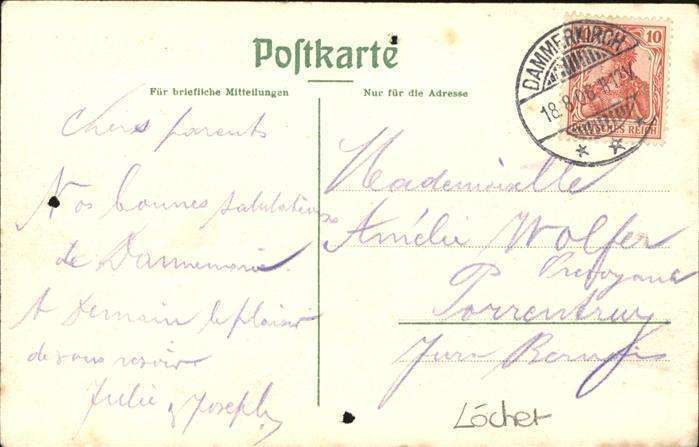 Postkarte
Für briefliche Mitteilungen
Nur für die Adresse
10
DEUTSCHES REICH
DAMMERKIRCH
18.8.08
Chers parents
Nos bonnes salutations
de Dannemarie
A Demain le plaisir
de vous revoir
Julie & Joseph
Mademoiselle
Amélie Wolfer
P.
Porrentruy
Jura
Löcher